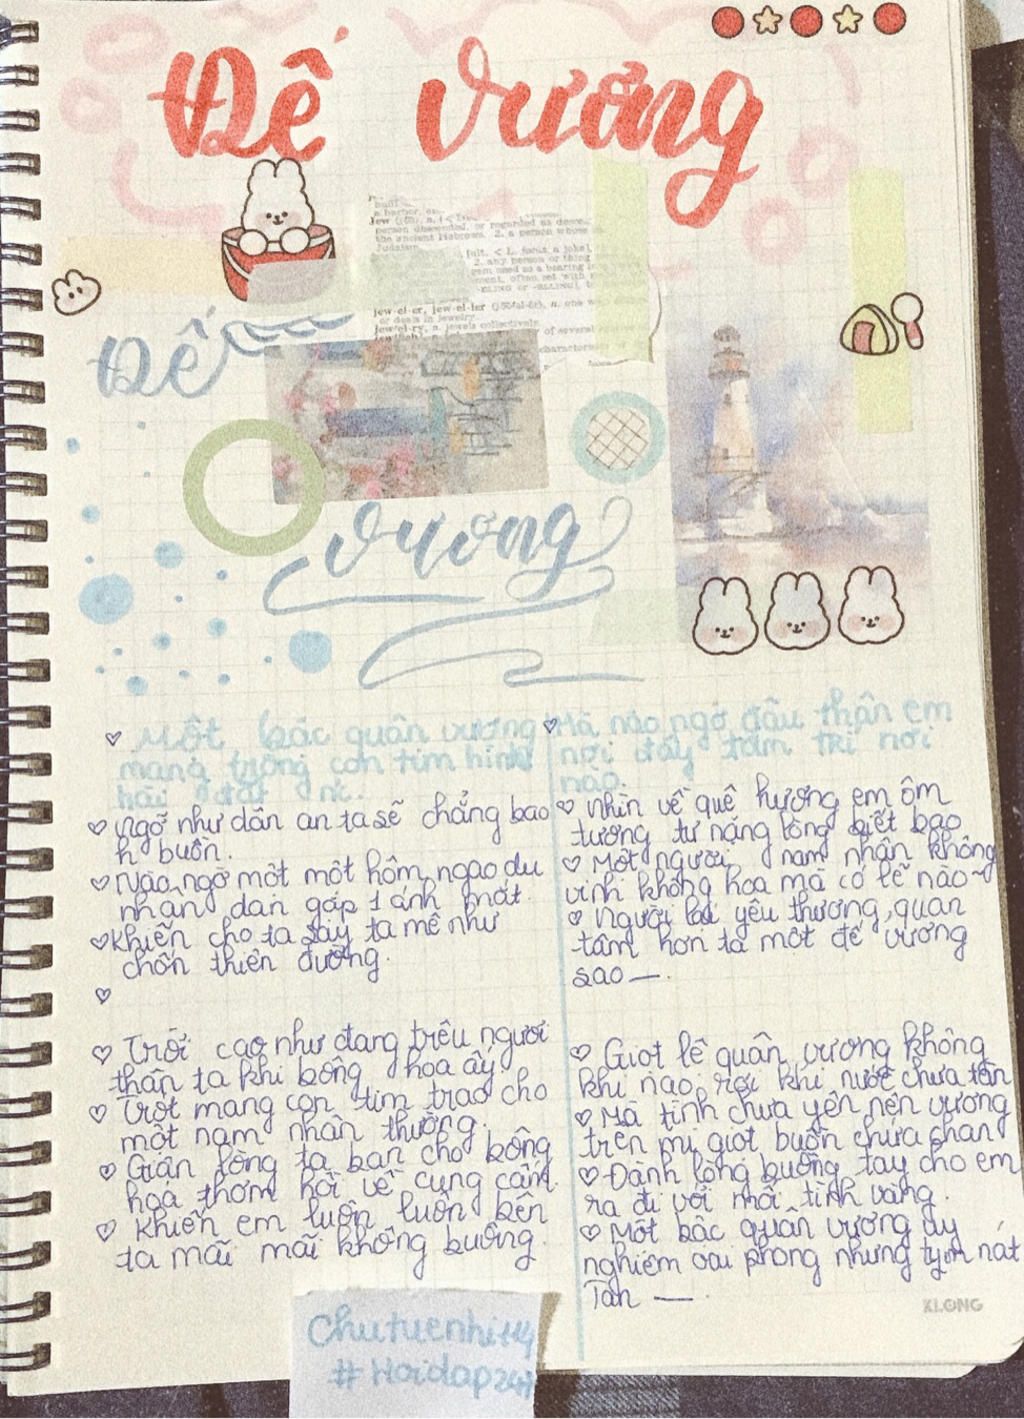 Đế vương
jew
person descended, or regarded as desce
the ancient Hebrews. 2. a person whose
Judaism.
[alt. < L. focus, a joke]
2. any person or thing
used as a bearing
often set with
jew-el-er, jew-el-ler n. one w
or deals in jewelry.
jew-el-ry, n. jewels collectively.
of several
characteri
Đế
vương
Một bác quân vương
mang trong con tim hình
hài đất nc.
Ngỡ như dân an ta sẽ chẳng bao
h buồn.
Nào ngờ một một hôm ngao du
nhân dan gặp 1 ánh mắt.
khiến cho ta say ta mê như
chốn thiên đường.
Trời cao như đang trêu ngươi
thân ta khi bông hoa ấy.
Trót mang con tim trao cho
một nam nhân thường.
Giận lòng ta ban cho bông
hoa thơm hồi về cung cấm.
khiến em luôn luôn bên
ta mãi mãi không buông.
Mà nào ngờ đâu thân em
nơi đây tâm trí nơi
nào.
Nhìn về quê hương em ôm
tương tư nặng lòng biết bao
Một người nam nhân không
vinh không hoa mà có lẽ nào~
Người lại yêu thương, quan
tâm hơn ta một đế vương
sao —.
Giọt lệ quân vương không
khi nào rơi khi nước chưa tàn
Mà tình chưa yên nên vương
trên mi giọt buồn chứa chan
Đành lòng buông tay cho em
ra đi với mối tình vàng.
Một bác quân vương uy
nghiêm oai phong nhưng tym nát
Tan —.
KLONG
Chutuenhi114
# Hoidap247